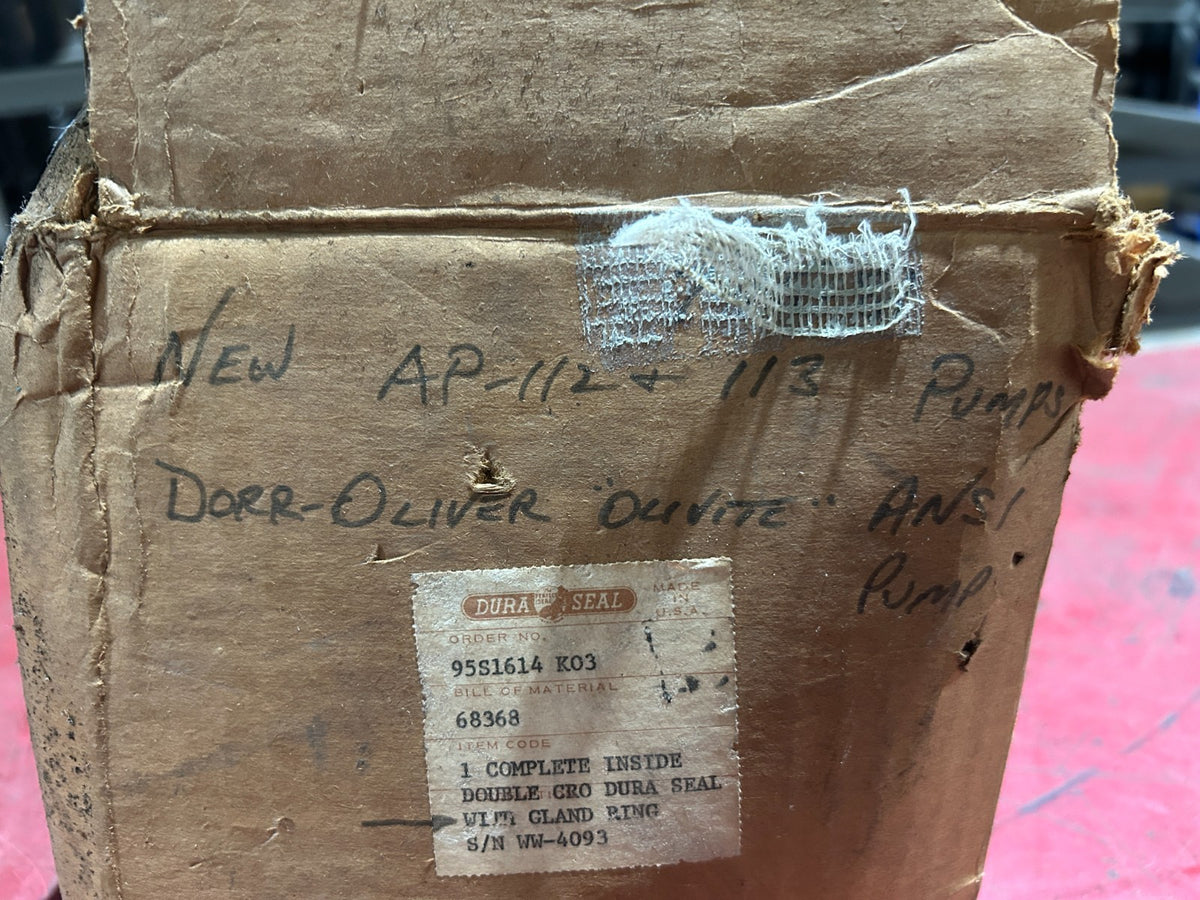 NEW AP-112 + 113 PUMPS
DORR-OLIVER "OLIVITE" ANSI
PUMP
DURA SEAL
MADE
IN
U.S.A.
ORDER NO.
95S1614 K03
BILL OF MATERIAL
68368
ITEM CODE
1 COMPLETE INSIDE
DOUBLE CRO DURA SEAL
WITH GLAND RING
S/N WW-4093